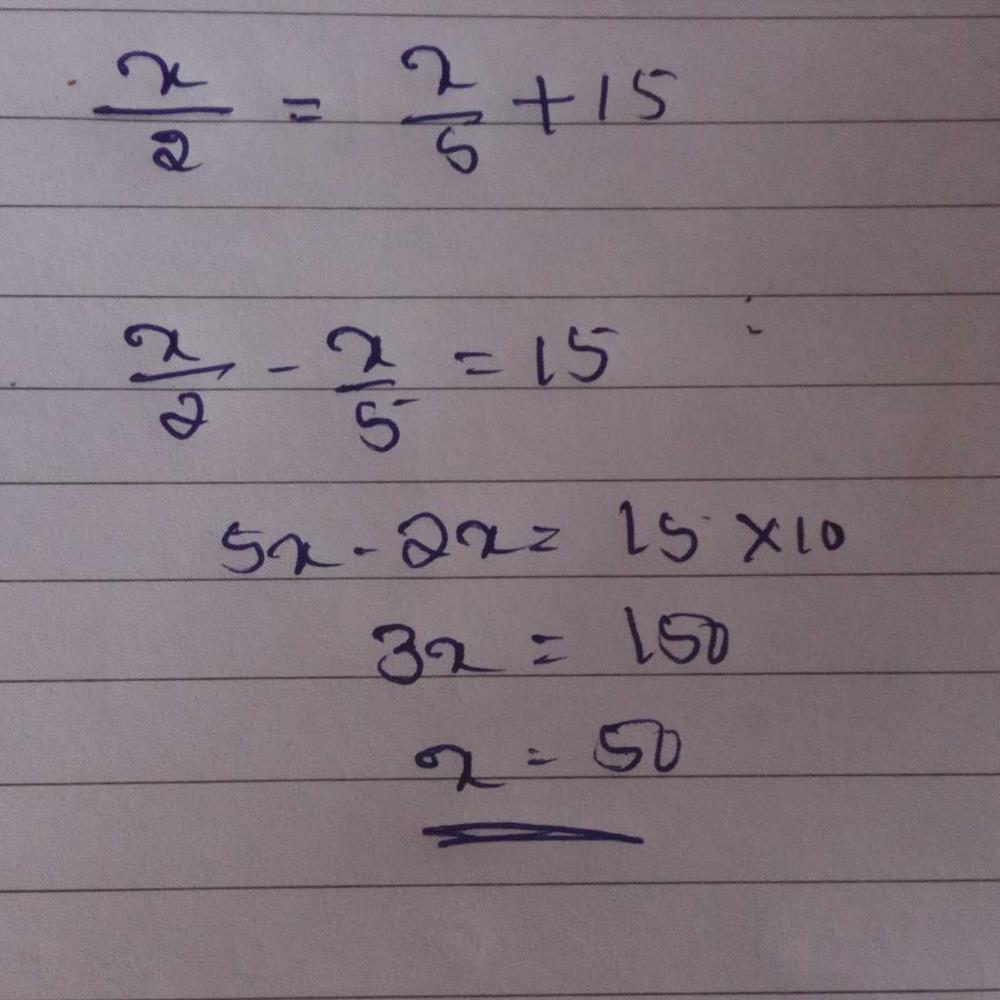 x/2 = x/5 + 15
x/2 - x/5 = 15
5x - 2x = 15 × 10
3x = 150
x = 50